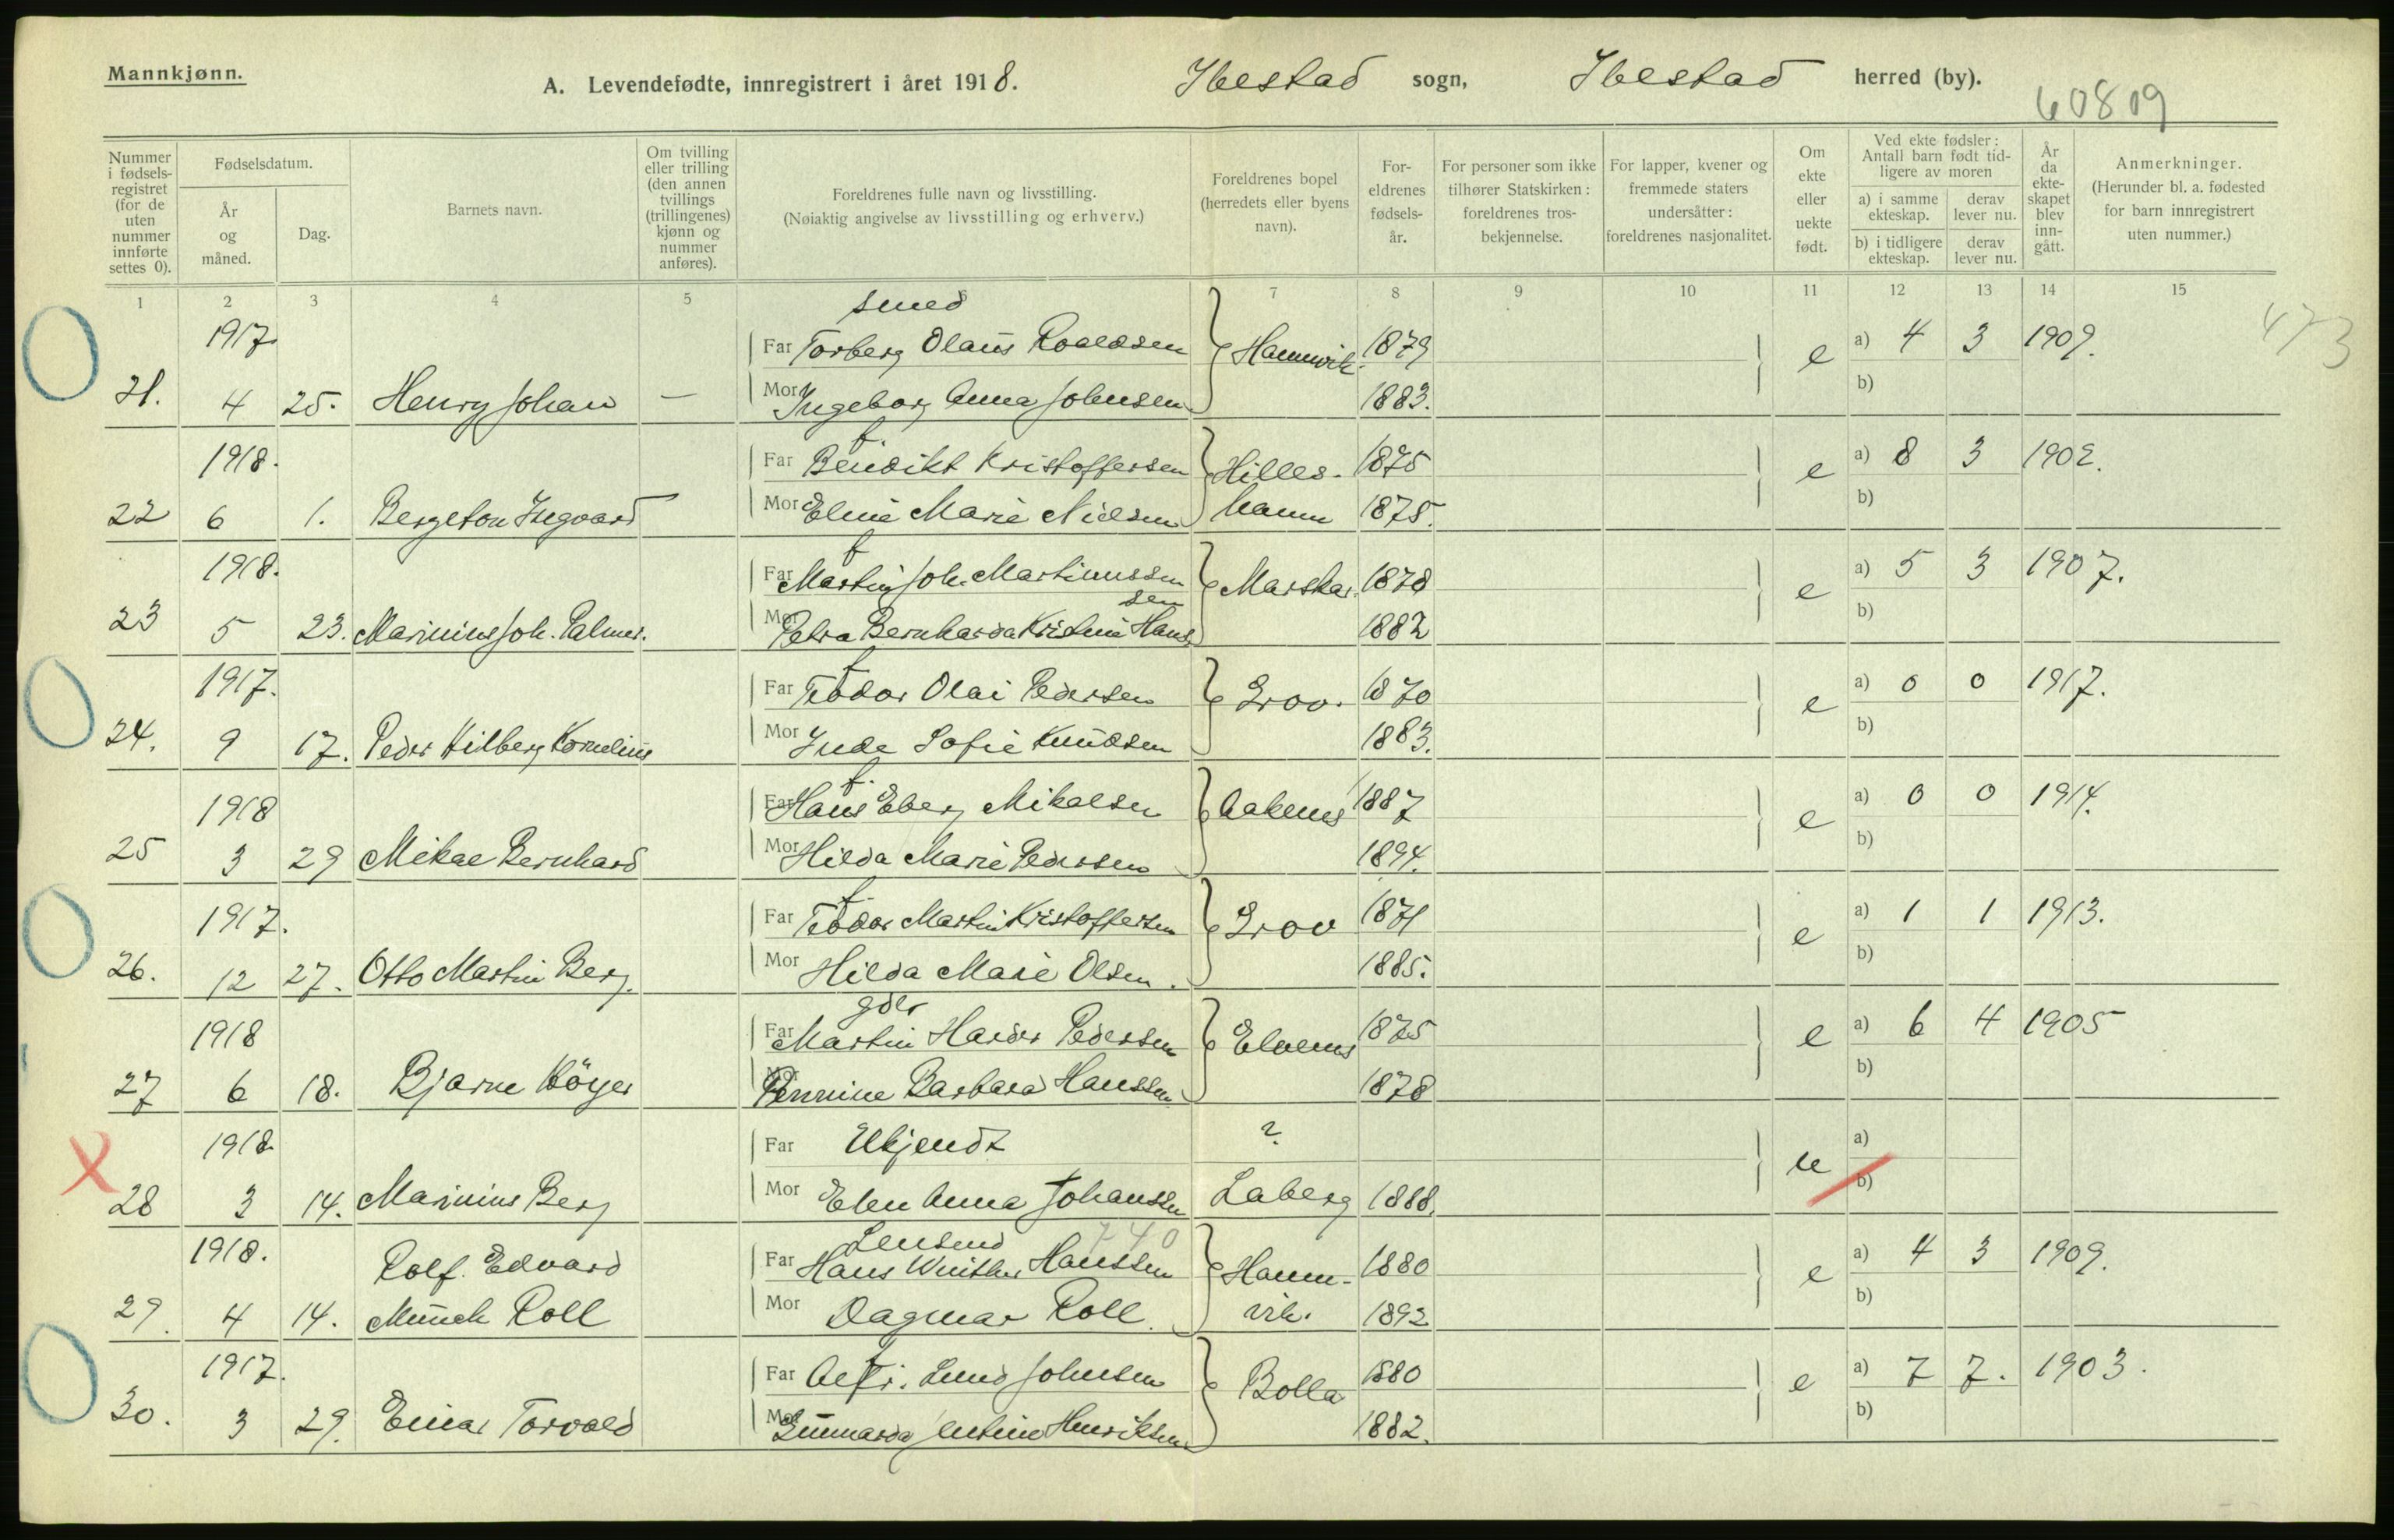 Mannkjønn.
A. Levendefødte, innregistrert i året 1918. Ibestad sogn, Ibestad herred (by).
60809
Nummer i fødsels-registret (for de uten nummer innførte settes 0).
Fødselsdatum.
År og måned.
Dag.
Barnets navn.
Om tvilling eller trilling (den annen tvillings (trillingenes) kjønn og nummer anføres).
Foreldrenes fulle navn og livsstilling.
(Nøiaktig angivelse av livsstilling og erhverv.)
Foreldrenes bopel (herredets eller byens navn).
For-eldrenes fødsels-år.
For personer som ikke tilhører Statskirken: foreldrenes tros-bekjennelse.
For lapper, kvener og fremmede staters undersåtter: foreldrenes nasjonalitet.
Om ekte eller uekte født.
Ved ekte fødsler: Antall barn født tid-ligere av moren
a) i samme ekteskap.
derav lever nu.
b) i tidligere ekteskap.
derav lever nu.
År da ekte-skapet blev inn-gått.
Anmerkninger.
(Herunder bl. a. fødested for barn innregistrert uten nummer.)
1 2 3 4 5 7 8 9 10 11 12 13 14 15
smed
1917. Far Torberg Olaus Roaldsen Hamnvik. 1879 e a) 4 3 1909. 473
21. 4 25. Henry Johan — Mor Ingeborg Anna Johnsen 1883. b)
f.
1918. Far Bendikt Kristoffersen Hilles- 1875 e a) 8 3 1902.
22 6 1. Bergeton Ingvard Mor Eline Marie Nielsen hamn 1875. b)
f
1918. Far Martin Joh. Martinussen Marskar. 1878 e a) 5 3 1907.
sen
23 5 23. Marinius Joh. Palmer. Mor Petra Bernharda Kristine Hans 1882 b)
f
1917. Far Teodor Olai Pedersen Grov. 1870 e a) 0 0 1917.
24. 9 17. Peder Hilberg Kornelius Mor Inda Sofie Knudsen 1883. b)
f.
1918 Far Hans Eberg Mikalsen Aaknes 1887 e a) 0 0 1914.
25 3 29 Mikal Bernhard Mor Hilda Marie Pedersen 1894. b)
f.
1917. Far Teodor Martin Kristoffersen Grov 1871 e a) 1 1 1913.
26. 12 27. Otto Martin Berg. Mor Hilda Marie Olsen. 1885. b)
gdbr
1918 Far Martin Harder Pedersen Elvenes 1875 e a) 6 4 1905
27 6 18. Bjarne Höyer Mor Pernine Barbara Hanssen 1878 b)
1918. Far Ukjendt ? u a)
28 3 14. Marinius Berg Mor Elen Anna Johanssen Laberg 1888. b)
Lensmd 740
1918. Rolf Edvard Far Hans Winther Hanssen Hamn- 1880 e a) 4 3 1909.
29. 4 14. Münch Roll Mor Dagmar Roll. vik. 1892 b)
f
1917. Far Alfr. Lund Johnsen Bolla 1880 e a) 7 7. 1903.
30. 3 29. Einar Torvald Mor Gunnarda Jentine Henriksen 1882. b)